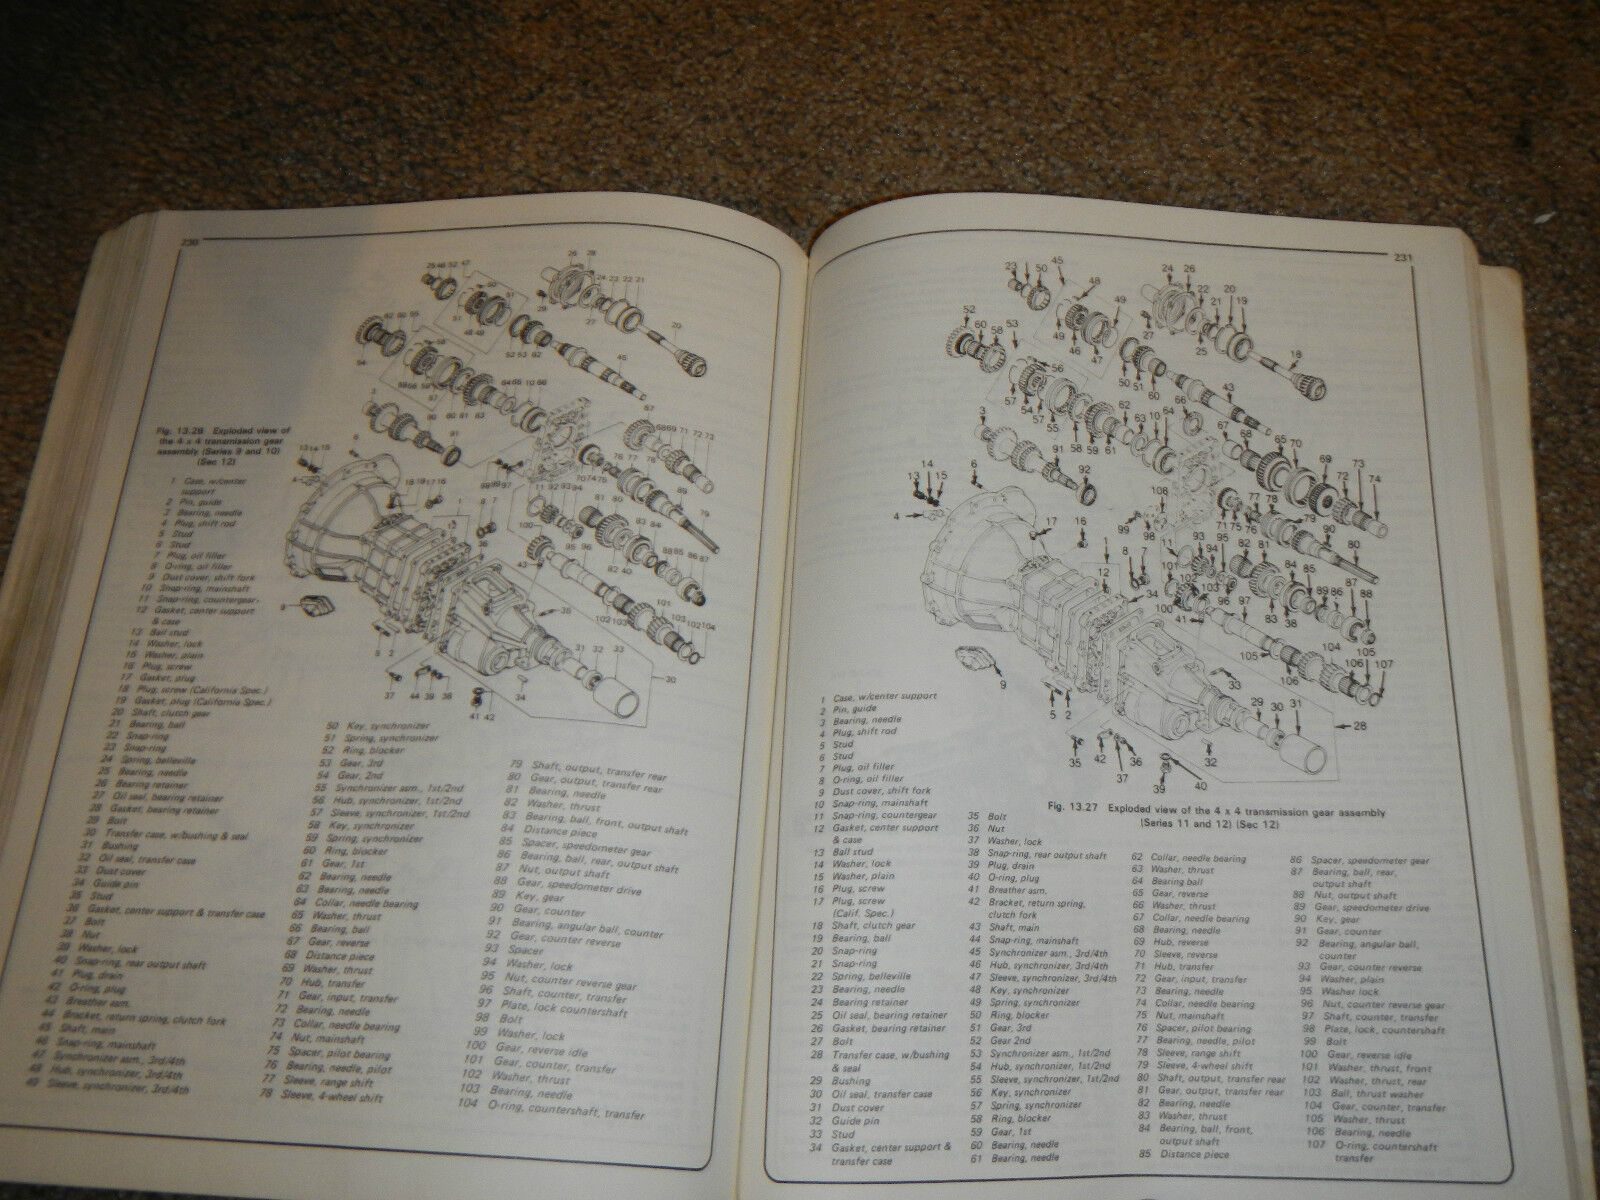 230
Fig. 13.26 Exploded view of
the 4 x 4 transmission gear
assembly (Series 9 and 10)
(Sec 12)
1 Case, w/center
support
2 Pin, guide
3 Bearing, needle
4 Plug, shift rod
5 Stud
6 Stud
7 Plug, oil filler
8 O-ring, oil filler
9 Dust cover, shift fork
10 Snap-ring, mainshaft
11 Snap-ring, countergear
12 Gasket, center support
& case
13 Ball stud
14 Washer, lock
15 Washer, plain
16 Plug, screw
17 Gasket, plug
18 Plug, screw (California Spec.)
19 Gasket, plug (California Spec.)
20 Shaft, clutch gear
21 Bearing, ball
22 Snap-ring
23 Snap-ring
24 Spring, belleville
25 Bearing, needle
26 Bearing retainer
27 Oil seal, bearing retainer
28 Gasket, bearing retainer
29 Bolt
30 Transfer case, w/bushing & seal
31 Bushing
32 Oil seal, transfer case
33 Dust cover
34 Guide pin
35 Stud
36 Gasket, center support & transfer case
37 Bolt
38 Nut
39 Washer, lock
40 Snap-ring, rear output shaft
41 Plug, drain
42 O-ring, plug
43 Breather asm.
44 Bracket, return spring, clutch fork
45 Shaft, main
46 Snap-ring, mainshaft
47 Synchronizer asm., 3rd/4th
48 Hub, synchronizer, 3rd/4th
49 Sleeve, synchronizer, 3rd/4th
50 Key, synchronizer
51 Spring, synchronizer
52 Ring, blocker
53 Gear, 3rd
54 Gear, 2nd
55 Synchronizer asm., 1st/2nd
56 Hub, synchronizer, 1st/2nd
57 Sleeve, synchronizer, 1st/2nd
58 Key, synchronizer
59 Spring, synchronizer
60 Ring, blocker
61 Gear, 1st
62 Bearing, needle
63 Bearing, needle
64 Collar, needle bearing
65 Washer, thrust
66 Bearing, ball
67 Gear, reverse
68 Distance piece
69 Washer, thrust
70 Hub, transfer
71 Gear, input, transfer
72 Bearing, needle
73 Collar, needle bearing
74 Nut, mainshaft
75 Spacer, pilot bearing
76 Bearing, needle, pilot
77 Sleeve, range shift
78 Sleeve, 4-wheel shift
79 Shaft, output, transfer rear
80 Gear, output, transfer rear
81 Bearing, needle
82 Washer, thrust
83 Bearing, ball, front, output shaft
84 Distance piece
85 Spacer, speedometer gear
86 Bearing, ball, rear, output shaft
87 Nut, output shaft
88 Gear, speedometer drive
89 Key, gear
90 Gear, counter
91 Bearing, angular ball, counter
92 Gear, counter reverse
93 Spacer
94 Washer, lock
95 Nut, counter reverse gear
96 Shaft, counter, transfer
97 Plate, lock countershaft
98 Bolt
99 Washer, lock
100 Gear, reverse idle
101 Gear, counter, transfer
102 Washer, thrust
103 Bearing, needle
104 O-ring, countershaft, transfer
231
Fig. 13.27 Exploded view of the 4 x 4 transmission gear assembly
(Series 11 and 12) (Sec 12)
1 Case, w/center support
2 Pin, guide
3 Bearing, needle
4 Plug, shift rod
5 Stud
6 Stud
7 Plug, oil filler
8 O-ring, oil filler
9 Dust cover, shift fork
10 Snap-ring, mainshaft
11 Snap-ring, countergear
12 Gasket, center support
& case
13 Ball stud
14 Washer, lock
15 Washer, plain
16 Plug, screw
17 Plug, screw
(Calif. Spec.)
18 Shaft, clutch gear
19 Bearing, ball
20 Snap-ring
21 Snap-ring
22 Spring, belleville
23 Bearing, needle
24 Bearing retainer
25 Oil seal, bearing retainer
26 Gasket, bearing retainer
27 Bolt
28 Transfer case, w/bushing
& seal
29 Bushing
30 Oil seal, transfer case
31 Dust cover
32 Guide pin
33 Stud
34 Gasket, center support &
transfer case
35 Bolt
36 Nut
37 Washer, lock
38 Snap-ring, rear output shaft
39 Plug, drain
40 O-ring, plug
41 Breather asm.
42 Bracket, return spring,
clutch fork
43 Shaft, main
44 Snap-ring, mainshaft
45 Synchronizer asm., 3rd/4th
46 Hub, synchronizer, 3rd/4th
47 Sleeve, synchronizer, 3rd/4th
48 Key, synchronizer
49 Spring, synchronizer
50 Ring, blocker
51 Gear, 3rd
52 Gear 2nd
53 Synchronizer asm., 1st/2nd
54 Hub, synchronizer, 1st/2nd
55 Sleeve, synchronizer, 1st/2nd
56 Key, synchronizer
57 Spring, synchronizer
58 Ring, blocker
59 Gear, 1st
60 Bearing, needle
61 Bearing, needle
62 Collar, needle bearing
63 Washer, thrust
64 Bearing ball
65 Gear, reverse
66 Washer, thrust
67 Collar, needle bearing
68 Bearing, needle
69 Hub, reverse
70 Sleeve, reverse
71 Hub, transfer
72 Gear, input, transfer
73 Bearing, needle
74 Collar, needle bearing
75 Nut, mainshaft
76 Spacer, pilot bearing
77 Bearing, needle, pilot
78 Sleeve, range shift
79 Sleeve, 4-wheel shift
80 Shaft, output, transfer rear
81 Gear, output, transfer rear
82 Bearing, needle
83 Washer, thrust
84 Bearing, ball, front,
output shaft
85 Distance piece
86 Spacer, speedometer gear
87 Bearing, ball, rear,
output shaft
88 Nut, output shaft
89 Gear, speedometer drive
90 Key, gear
91 Gear, counter
92 Bearing, angular ball,
counter
93 Gear, counter reverse
94 Washer, plain
95 Washer lock
96 Nut, counter reverse gear
97 Shaft, counter, transfer
98 Plate, lock, countershaft
99 Bolt
100 Gear, reverse idle
101 Washer, thrust, front
102 Washer, thrust, rear
103 Ball, thrust washer
104 Gear, counter, transfer
105 Washer, thrust
106 Bearing, needle
107 O-ring, countershaft
transfer